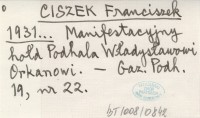 CISZEK Franciszek
1931... Manifestacyjny
hołd Podhala Władysławowi
Orkanowi. — Gaz. Podh.
19, nr 22.